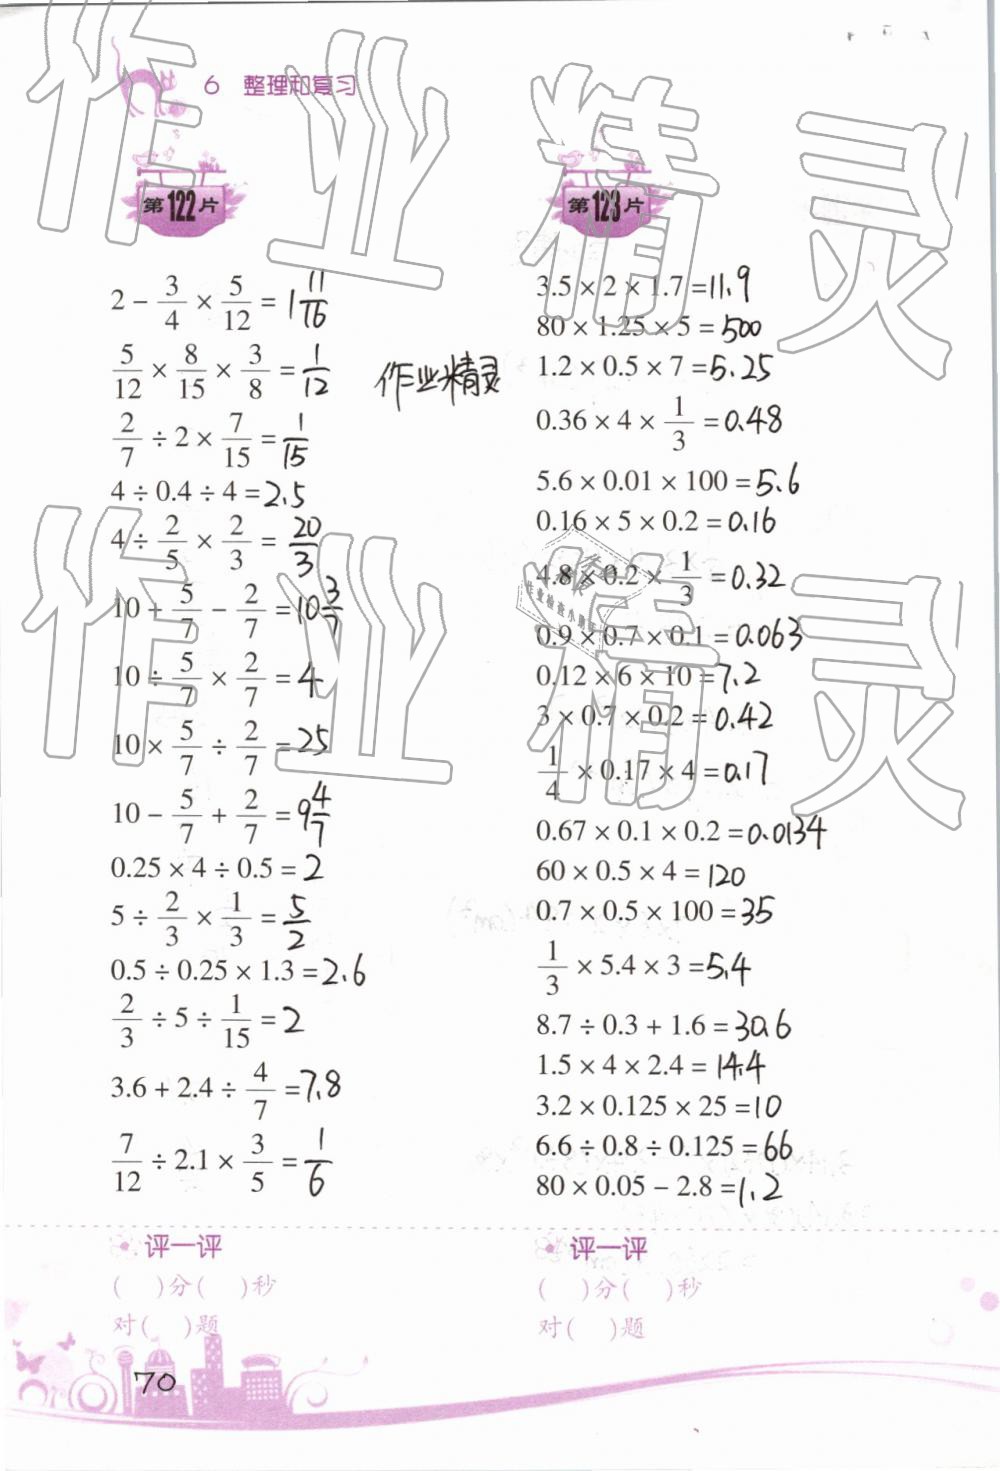 6 整理和复习
第122片
2 − 3/4 × 5/12 = 1 11/16
5/12 × 8/15 × 3/8 = 1/12
作业精灵
2/7 ÷ 2 × 7/15 = 1/15
4 ÷ 0.4 ÷ 4 = 2.5
4 ÷ 2/5 × 2/3 = 20/3
10 + 5/7 − 2/7 = 10 3/7
10 ÷ 5/7 × 2/7 = 4
10 × 5/7 ÷ 2/7 = 25
10 − 5/7 + 2/7 = 9 4/7
0.25 × 4 ÷ 0.5 = 2
5 ÷ 2/3 × 1/3 = 5/2
0.5 ÷ 0.25 × 1.3 = 2.6
2/3 ÷ 5 ÷ 1/15 = 2
3.6 + 2.4 ÷ 4/7 = 7.8
7/12 ÷ 2.1 × 3/5 = 1/6
评一评
( )分( )秒
对( )题
第123片
3.5 × 2 × 1.7 = 11.9
80 × 1.25 × 5 = 500
1.2 × 0.5 × 7 = 5.25
0.36 × 4 × 1/3 = 0.48
5.6 × 0.01 × 100 = 5.6
0.16 × 5 × 0.2 = 0.16
4.8 × 0.2 × 1/3 = 0.32
0.9 × 0.7 × 0.1 = 0.063
0.12 × 6 × 10 = 7.2
3 × 0.7 × 0.2 = 0.42
1/4 × 0.17 × 4 = 0.17
0.67 × 0.1 × 0.2 = 0.0134
60 × 0.5 × 4 = 120
0.7 × 0.5 × 100 = 35
1/3 × 5.4 × 3 = 5.4
8.7 ÷ 0.3 + 1.6 = 30.6
1.5 × 4 × 2.4 = 14.4
3.2 × 0.125 × 25 = 10
6.6 ÷ 0.8 ÷ 0.125 = 66
80 × 0.05 − 2.8 = 1.2
评一评
( )分( )秒
对( )题
70
作业精灵
作业精灵